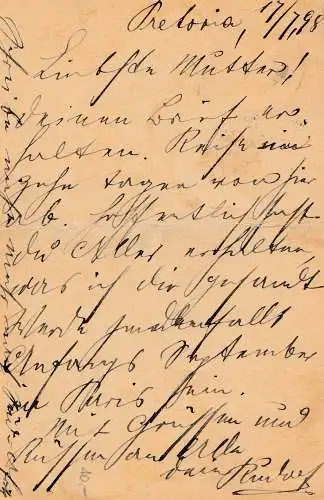 Pretoria, 17/7,98
Liebste Mutter!
deinen Brief er-
halten. Reise in
zehn tagen von hier
ab. hoffentlich hast
du Alles erhalten,
was ich dir gesandt
Werde jedenfalls
Anfangs September
in Paris sein.
Mit Grüssen und
Küssen an Alle
dein Rudolf